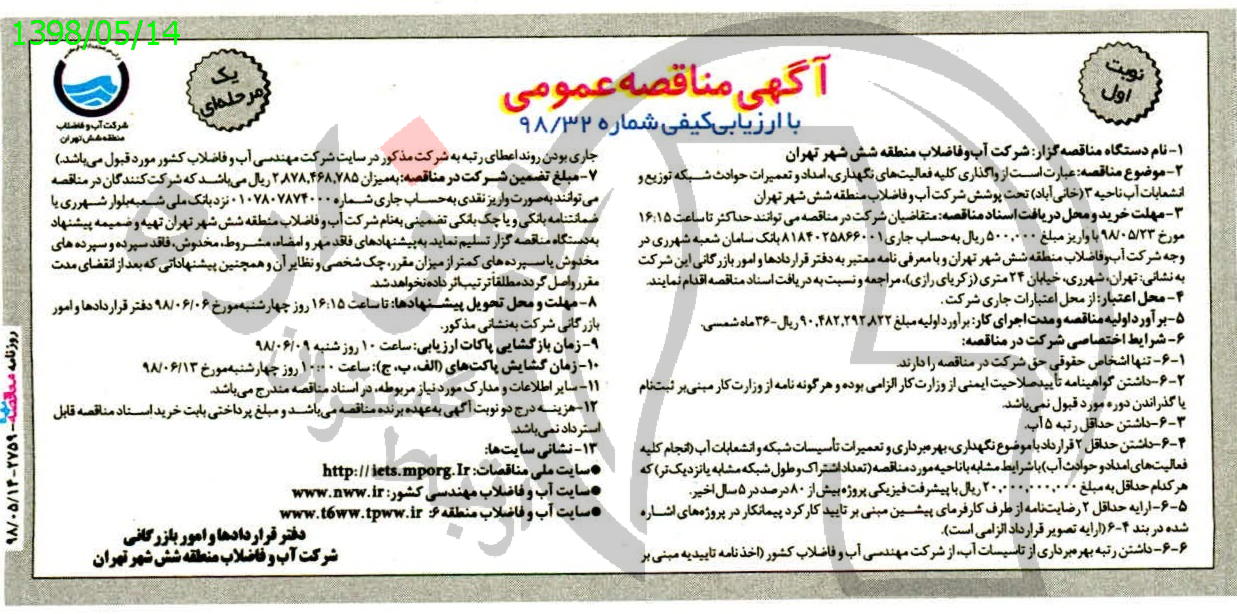 1398/05/14
شرکت آب و فاضلاب
منطقه شش تهران
یک
مرحله‌ای
نوبت
اول
آگهی مناقصه عمومی
با ارزیابی کیفی شماره ۹۸/۳۲
۱- نام دستگاه مناقصه گزار: شرکت آب و فاضلاب منطقه شش شهر تهران
۲- موضوع مناقصه: عبارت است از واگذاری کلیه فعالیت‌های نگهداری، امداد و تعمیرات حوادث شبکه توزیع و
انشعابات آب ناحیه ۳ (خانی آباد) تحت پوشش شرکت آب و فاضلاب منطقه شش شهر تهران
۳- مهلت خرید و محل دریافت اسناد مناقصه: متقاضیان شرکت در مناقصه می توانند حداکثر تا ساعت ۱۶:۱۵
مورخ ۹۸/۰۵/۲۳ با واریز مبلغ ۵۰۰,۰۰۰ ریال به‌حساب جاری ۸۱۸۴۰۲۵۸۶۶۰۰۱ بانک سامان شعبه شهرری در
وجه شرکت آب و فاضلاب منطقه شش شهر تهران و با معرفی نامه معتبر به دفتر قراردادها و امور بازرگانی این شرکت
به نشانی: تهران، شهرری، خیابان ۲۴ متری (زکریای رازی)، مراجعه و نسبت به دریافت اسناد مناقصه اقدام نمایند.
۴- محل اعتبار: از محل اعتبارات جاری شرکت.
۵- برآورد اولیه مناقصه و مدت اجرای کار: برآورد اولیه مبلغ ۹۰,۴۸۲,۲۹۲,۸۲۲ ریال-۳۶ ماه شمسی.
۶- شرایط اختصاصی شرکت در مناقصه:
۶-۱- تنها اشخاص حقوقی حق شرکت در مناقصه را دارند.
۶-۲- داشتن گواهینامه تأیید صلاحیت ایمنی از وزارت کار الزامی بوده و هرگونه نامه از وزارت کار مبنی بر ثبت‌نام
یا گذراندن دوره مورد قبول نمی‌باشد.
۶-۳- داشتن حداقل رتبه ۵ آب.
۶-۴- داشتن حداقل ۲ قرارداد با موضوع نگهداری، بهره‌برداری و تعمیرات تأسیسات شبکه و انشعابات آب (انجام کلیه
فعالیت‌های امداد و حوادث آب) با شرایط مشابه با ناحیه مورد مناقصه (تعداد اشتراک و طول شبکه مشابه یا نزدیک‌تر) که
هر کدام حداقل به مبلغ ۲۰,۰۰۰,۰۰۰,۰۰۰ ریال با پیشرفت فیزیکی پروژه بیش از ۸۰ درصد در ۵ سال اخیر.
۶-۵- ارایه حداقل ۲ رضایت‌نامه از طرف کارفرمای پیشین مبنی بر تایید کارکرد پیمانکار در پروژه‌های اشاره
شده در بند ۴-۶ (ارایه تصویر قرارداد الزامی است).
۶-۶- داشتن رتبه بهره‌برداری از تاسیسات آب، از شرکت مهندسی آب و فاضلاب کشور (اخذ نامه تاییدیه مبنی بر
جاری بودن روند اعطای رتبه به شرکت مذکور در سایت شرکت مهندسی آب و فاضلاب کشور مورد قبول می‌باشد.)
۷- مبلغ تضمین شرکت در مناقصه: به‌میزان ۲,۸۷۸,۴۶۸,۷۸۵ ریال می‌باشد که شرکت‌کنندگان در مناقصه
می‌توانند به‌صورت واریز نقدی به‌حساب جاری شماره ۰۱۰۷۸۰۷۸۷۴۰۰۰ نزد بانک ملی شعبه بلوار شهرری یا
ضمانتنامه بانکی و یا چک بانکی تضمینی به‌نام شرکت آب و فاضلاب منطقه شش شهر تهران تهیه و ضمیمه پیشنهاد
به‌دستگاه مناقصه گزار تسلیم نماید. به‌پیشنهادهای فاقد مهر و امضاء، مشروط، مخدوش، فاقد سپرده و سپرده های
مخدوش یا سپرده‌های کمتر از میزان مقرر، چک شخصی و نظایر آن و همچنین پیشنهاداتی که بعد از انقضای مدت
مقرر واصل گردد مطلقاً ترتیب اثر داده نخواهد شد.
۸- مهلت و محل تحویل پیشنهادها: تا ساعت ۱۶:۱۵ روز چهارشنبه مورخ ۹۸/۰۶/۰۶ دفتر قراردادها و امور
بازرگانی شرکت به‌نشانی مذکور.
۹- زمان بازگشایی پاکات ارزیابی: ساعت ۱۰ روز شنبه ۹۸/۰۶/۰۹
۱۰- زمان گشایش پاکت‌های (الف، ب، ج): ساعت ۱۰:۰۰ روز چهارشنبه مورخ ۹۸/۰۶/۱۳
۱۱- سایر اطلاعات و مدارک مورد نیاز مربوطه، در اسناد مناقصه مندرج می‌باشد.
۱۲- هزینه درج دو نوبت آگهی به‌عهده برنده مناقصه می‌باشد و مبلغ پرداختی بابت خرید اسناد مناقصه قابل
استرداد نمی‌باشد.
۱۳- نشانی سایت‌ها:
●سایت ملی مناقصات: http://iets.mporg.Ir
●سایت آب و فاضلاب مهندسی کشور: www.nww.ir
●سایت آب و فاضلاب منطقه ۶: www.t6ww.tpww.ir
دفتر قراردادها و امور بازرگانی
شرکت آب و فاضلاب منطقه شش شهر تهران
روزنامه مناقصه - ۲۷۵۹ - ۹۸/۰۵/۱۴